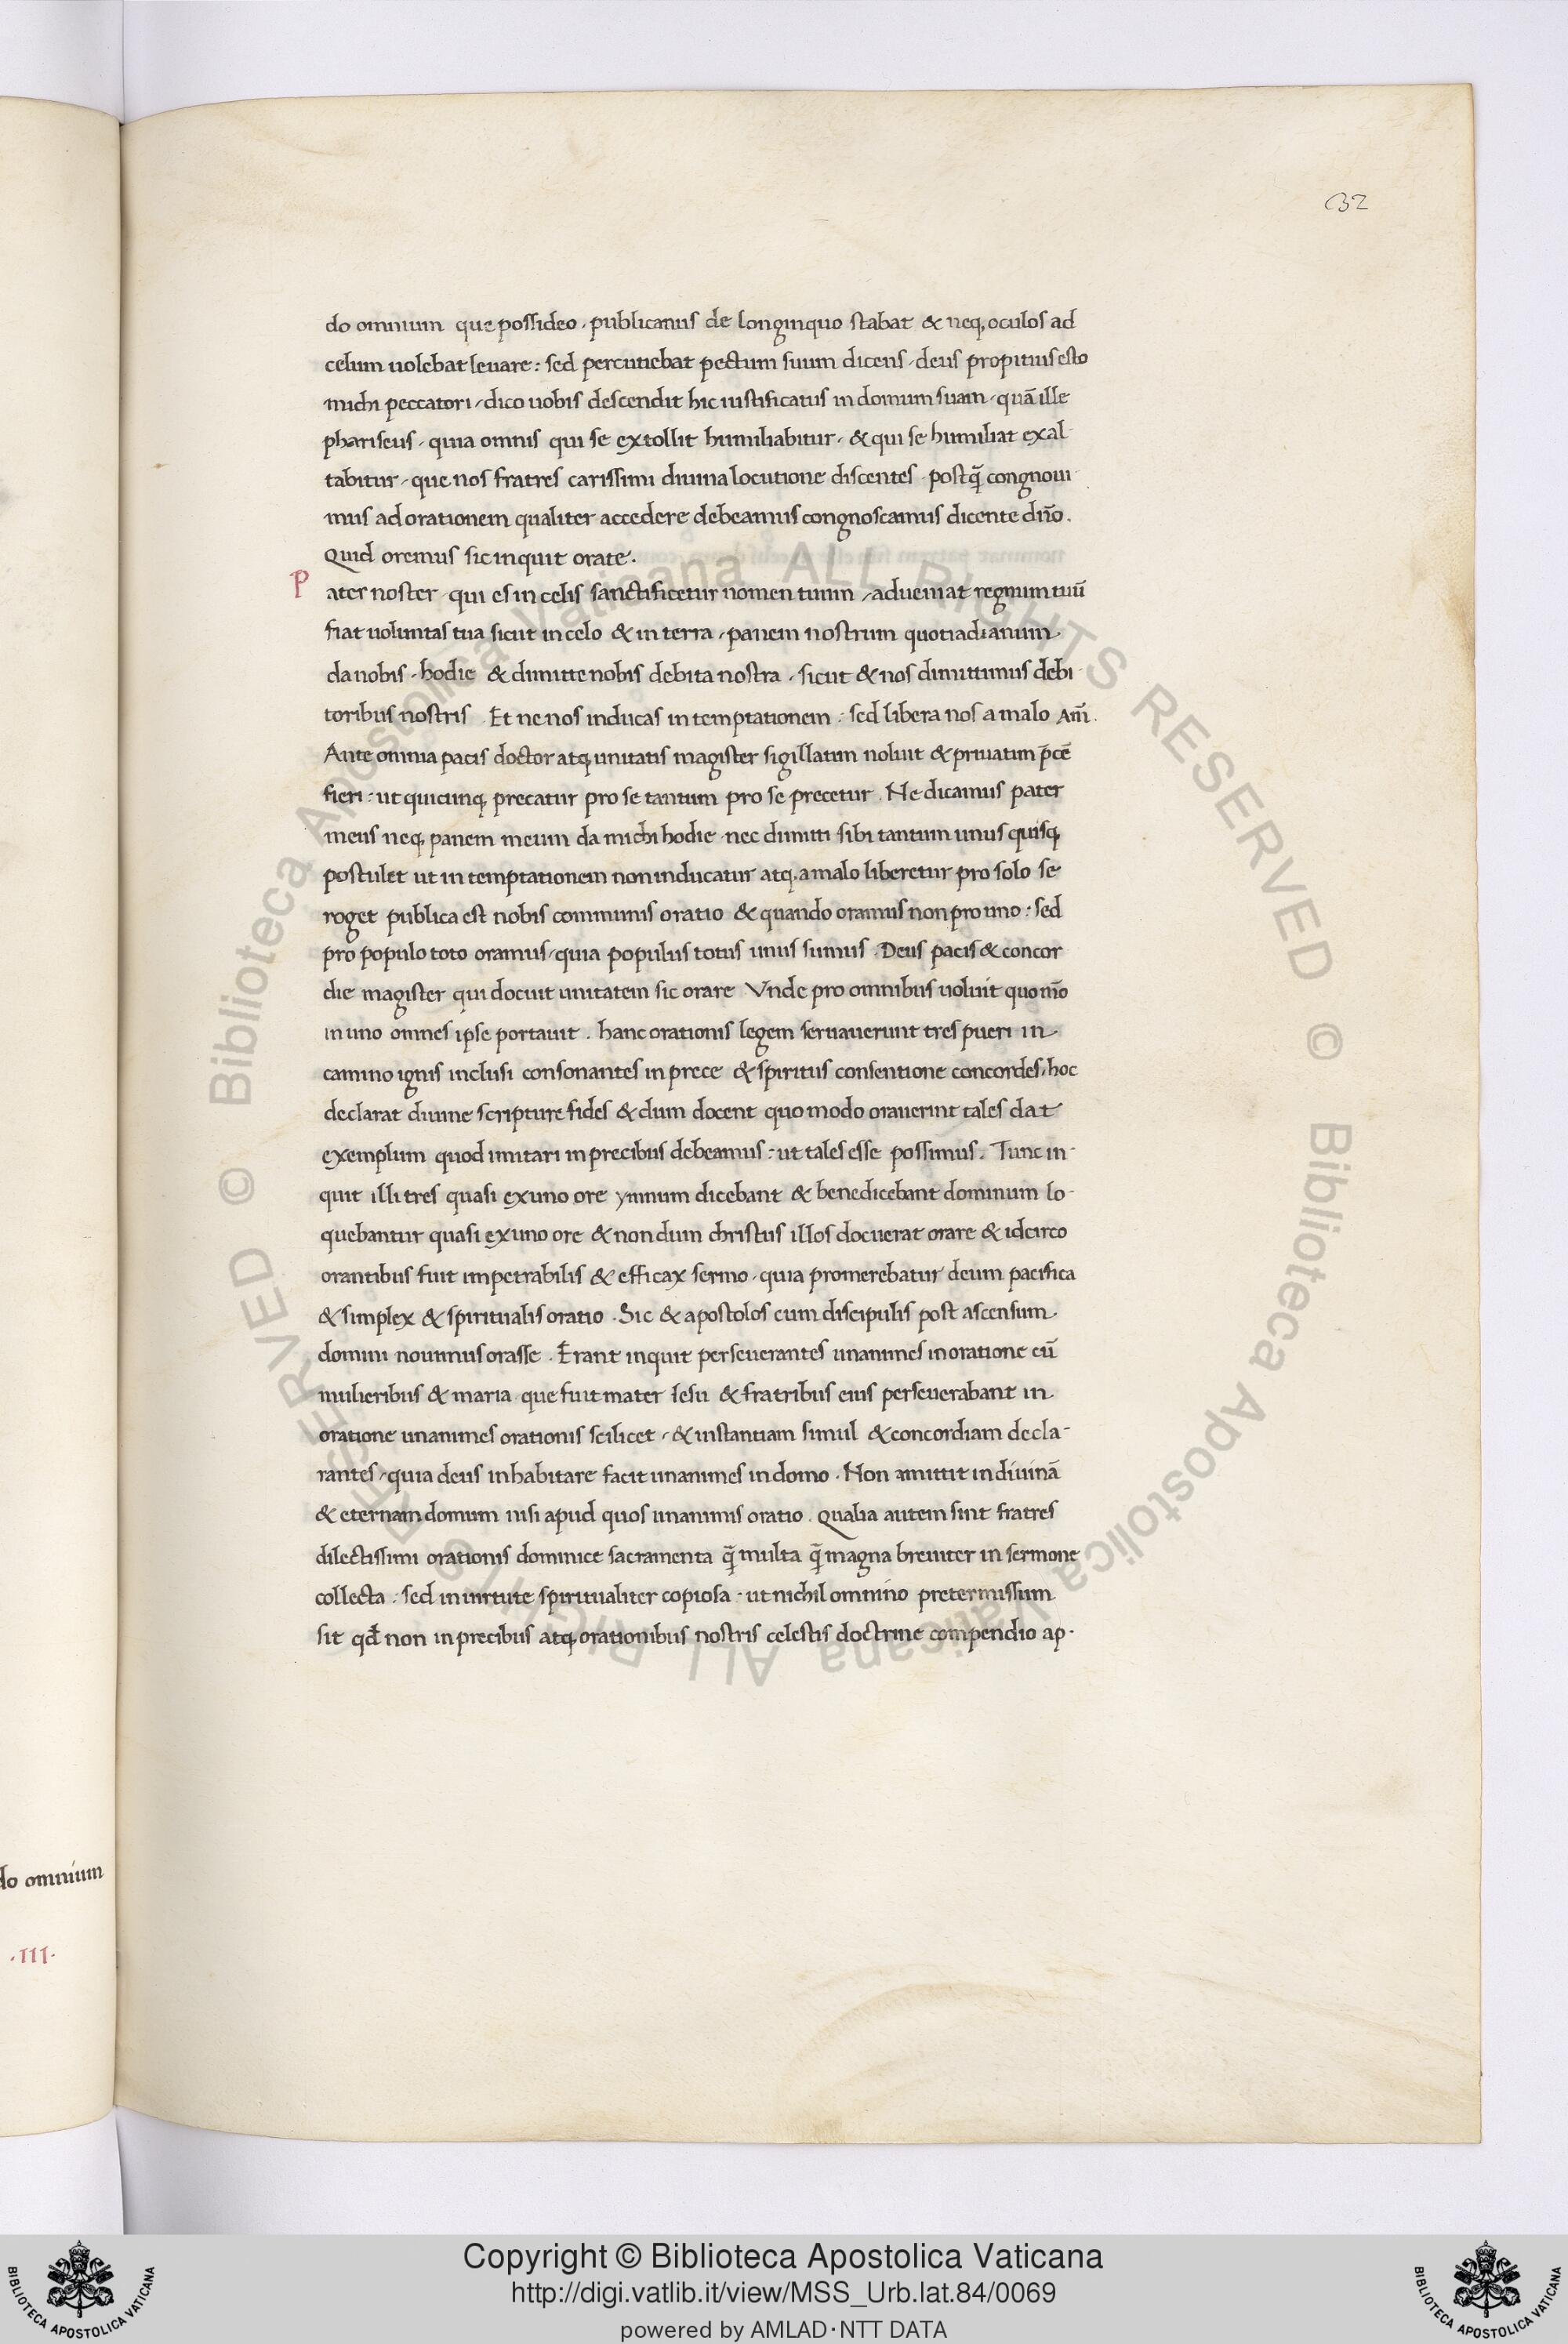 32
do omnium que possideo. publicanus de longinquo stabat & neq, oculos ad
celum uolebat leuare: sed percutiebat pectum suum dicens, deus propitius esto
michi peccatori, dico uobis descendit hic iustificatus in domum suam, quā ille
phariseus, quia omnis qui se extollit humiliabitur, & qui se humiliat exal
tabitur, que nos fratres carissimi diuina locutione discentes. postq̄ congnoui
mus ad orationem qualiter accedere debeamus congnoscamus dicente dn̄o.
Quid oremus sic inquit orate.
P
ater noster qui es in celis sanctificetur nomen tuum, adueniat regnum tuū
fiat uoluntas tua sicut in celo & in terra, panem nostrum quotiadianum.
da nobis. hodie & dimitte nobis debita nostra, sicut & nos dimittimus debi-
toribus nostris. Et ne nos inducas in temptationem: sed libera nos a malo Am̄.
Ante omnia pacis doctor atq, unitatis magister sigillatim noluit & priuatim p̄cē
fieri: ut quicunq, precatur pro se tantum pro se precetur. Ne dicamus pater
meus neq, panem meum da michi hodie nec dimitti sibi tantum unus quisq,
postulet ut in temptationem non inducatur atq, a malo liberetur pro solo se
roget publica est nobis communis oratio & quando oramus non pro uno: sed
pro populo toto oramus, quia populus totus unus sumus. Deus pacis & concor
die magister qui docuit unitatem sic orare Vnde pro omnibus uoluit quomō
in uno omnes ipse portauit. hanc orationis legem seruauerunt tres pueri in
camino ignis inclusi consonantes in prece & spiritus consentione concordes, hoc
declarat diuine scripture fides & dum docent quo modo orauerint tales dat
exemplum quod imitari in precibus debeamus: ut tales esse possimus. Tunc in-
quit illi tres quasi ex uno ore ymnum dicebant & benedicebant dominum lo-
quebantur quasi ex uno ore & non dum christus illos docuerat orare & idcirco
orantibus fuit impetrabilis & efficax sermo, quia promerebatur deum pacifica
& simplex & spiritualis oratio. Sic & apostolos cum discipulis post ascensum
domini nouimus orasse. Erant inquit perseuerantes unanimes in oratione cū
mulieribus & maria que fuit mater iesu & fratribus eius perseuerabant in
oratione unanimes orationis scilicet, & instantiam simul & concordiam decla-
rantes, quia deus inhabitare facit unanimes in domo. Non amittit in diuinā
& eternam domum nisi apud quos unanimis oratio. Qualia autem sint fratres
dilectissimi orationis dominice sacramenta q̄ multa q̄ magna breuiter in sermone
collecta: sed in uirtute spiritualiter copiosa. ut nichil omnino pretermissum
sit qd̄ non in precibus atq, orationibus nostris celestis doctrine compendio ap.
do omnium
.III.
© Biblioteca Apostolica Vaticana ALL RIGHTS RESERVED © Biblioteca Apostolica Vaticana ALL RIGHTS RESERVED
Copyright © Biblioteca Apostolica Vaticana
http://digi.vatlib.it/view/MSS_Urb.lat.84/0069
powered by AMLAD·NTT DATA
BIBLIOTECA APOSTOLICA VATICANA
BIBLIOTECA APOSTOLICA VATICANA